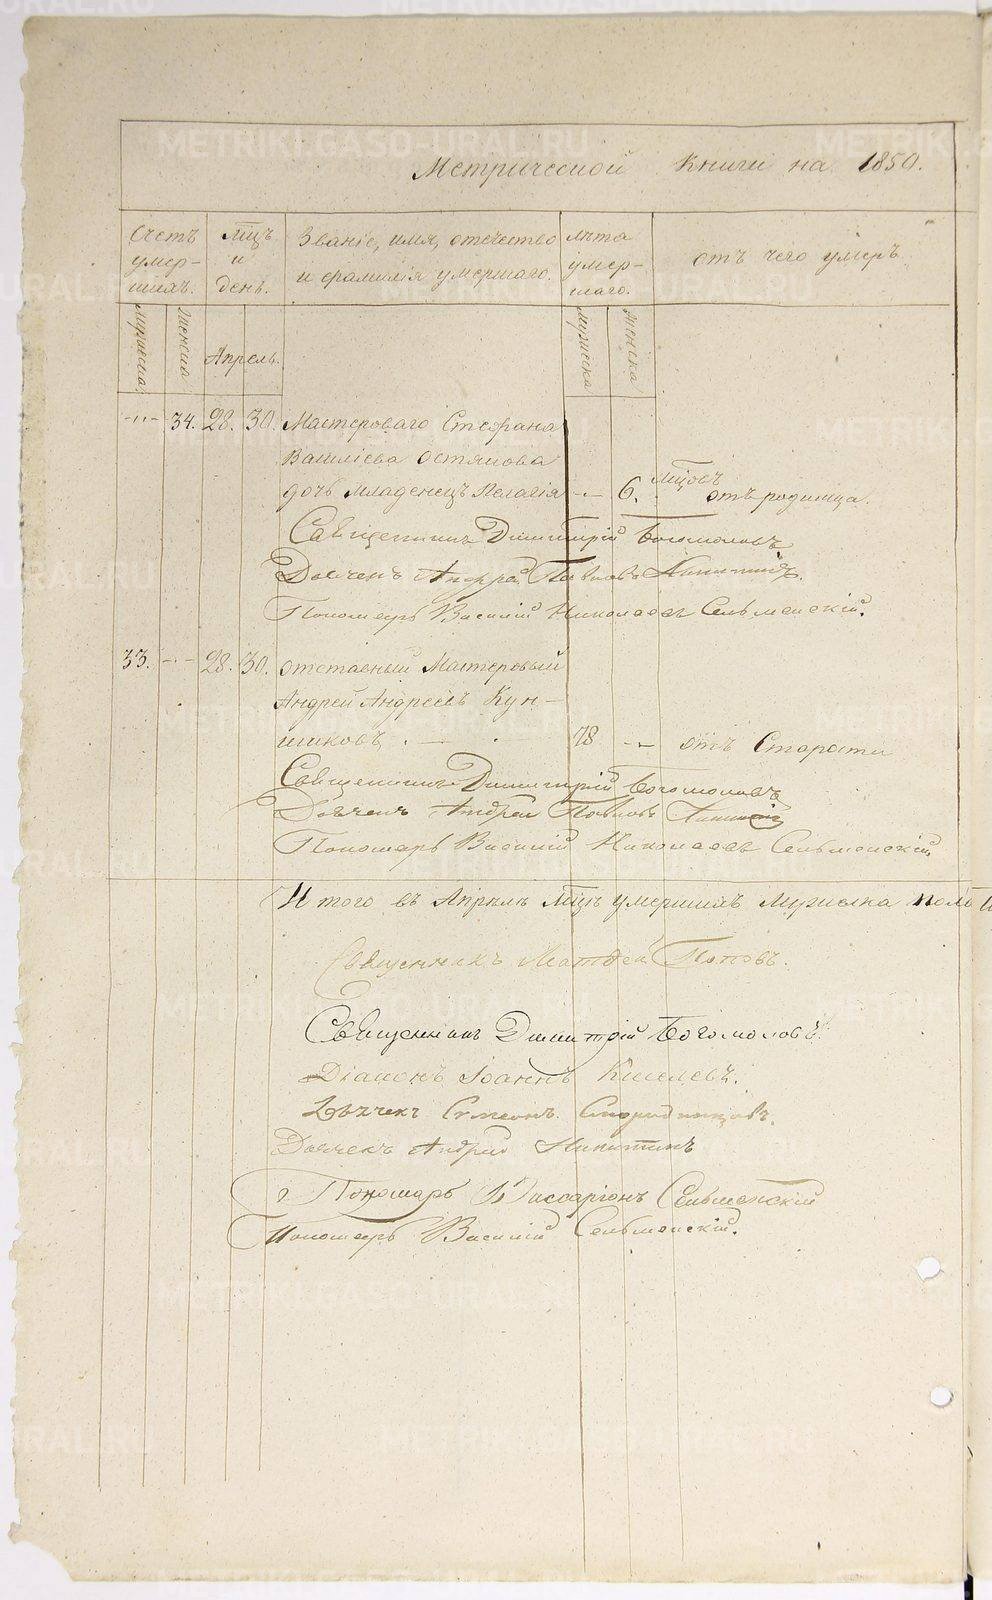 Метрической книги на 1850.
Счетъ умер- шихъ.
Мцъ и день.
Званіе, имя, отчество и фамилія умершаго.
Лѣта умер- шаго.
отъ чего умеръ
мужеска
женска
Апрель.
мужеска
женска
-"- 34. 28. 30. Мастероваго Стефана
Василіева
дочь младенецъ Пелагія -"- 6. мцовъ отъ родимца.
Священникъ Димитрій Богомоловъ
Дьячекъ Андрей Павловъ Никитинъ.
Пономарь Василій Николаевъ Сельменскій.
33. -"- 28. 30. отставный Мастеровый
Андрей Андреевъ Кун-
щиковъ. 78 -"- отъ Старости
Священникъ Димитрій Богомоловъ
Дьячекъ Андрей Павловъ Никитинъ
Пономарь Василій Николаевъ Сельменскій
Итого въ Апрѣлѣ Мцѣ умершихъ Мужеска пола
Священникъ Матѳей Поповъ.
Священникъ Димитрій Богомоловъ.
Діаконъ Іоаннъ Киселевъ.
Дьячекъ Симеонъ
Дьячекъ Андрей Никитинъ
Пономарь Виссаріонъ Сельменскій
Пономарь Василій Сельменскій.
METRIKI.GASO-URAL.RU